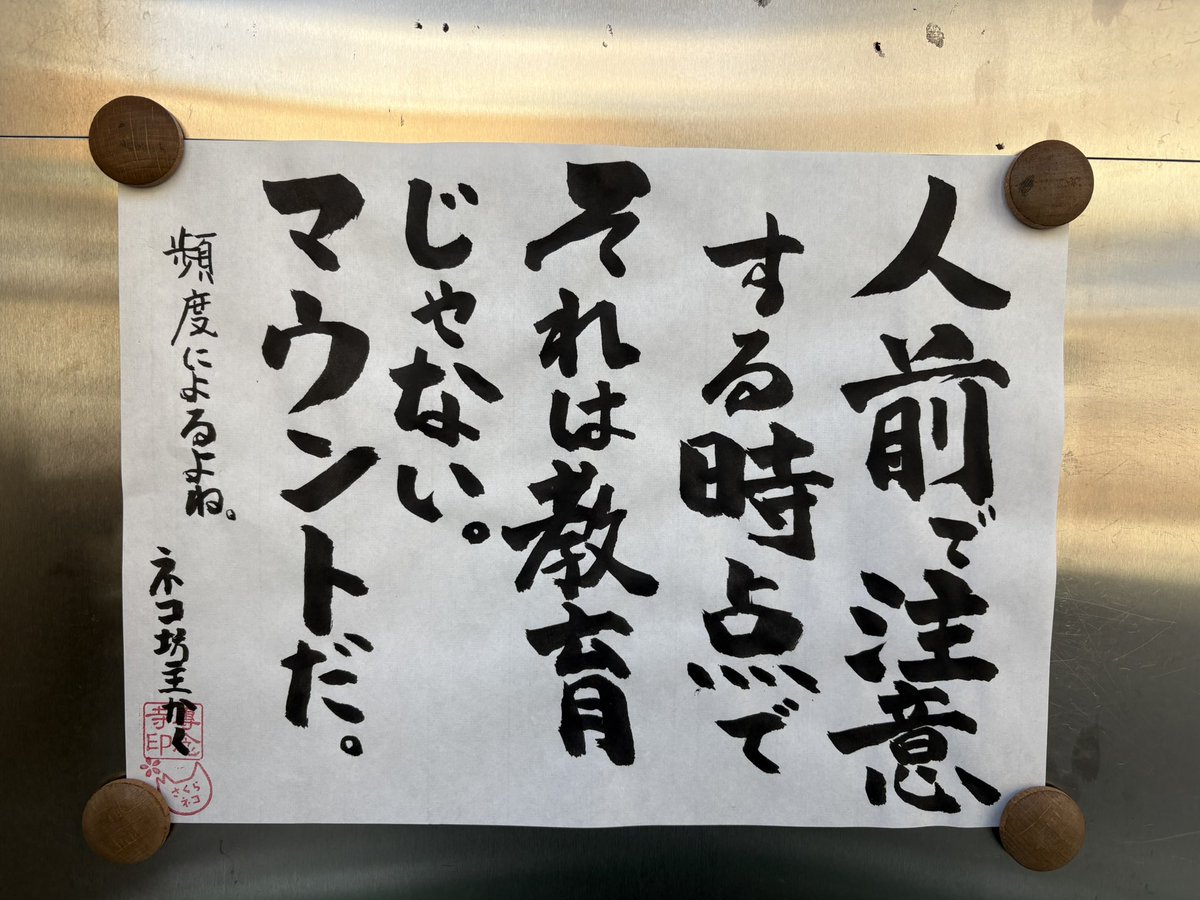 人前で注意
する時点で
それは教育
じゃない。
マウントだ。
頻度によるよね。
ネコ坊主かく
専念
寺印
さくら
ネコ